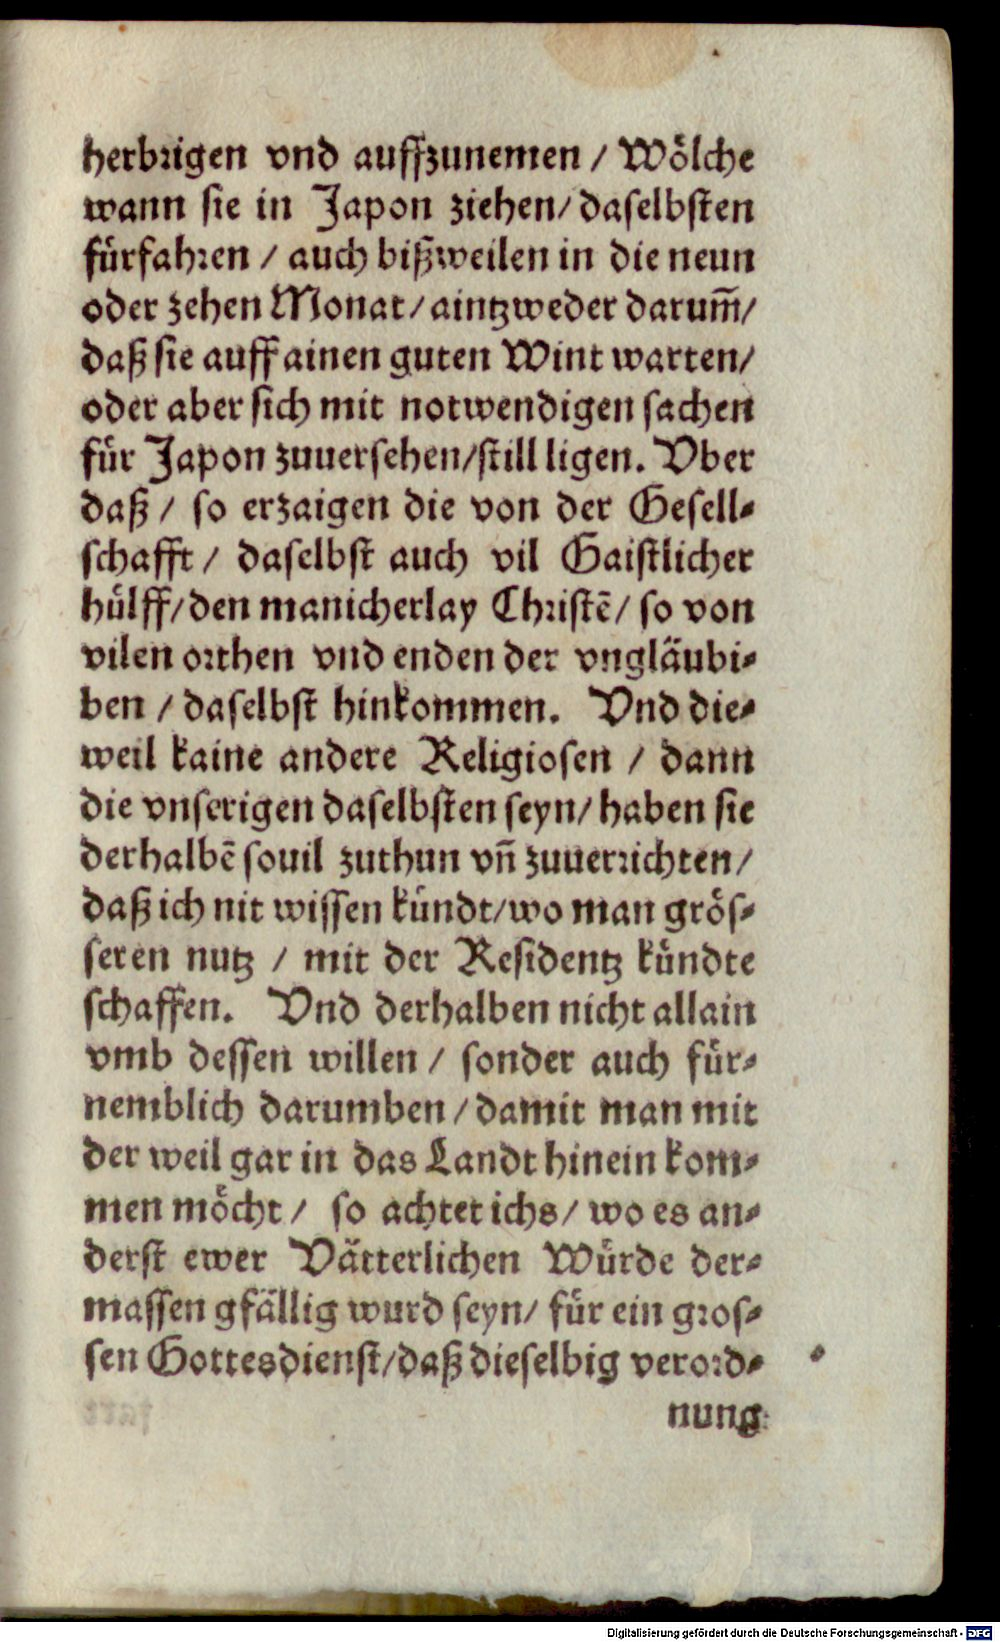 herbrigen vnd auffzunemen / Wölche
wann sie in Japon ziehen/ daselbsten
fürfahren / auch bißweilen in die neun
oder zehen Monat / aintzweder darum̃/
daß sie auff ainen guten Wint warten/
oder aber sich mit notwendigen sachen
für Japon zuuersehen/still ligen. Vber
daß / so erzaigen die von der Gesell-
schafft / daselbst auch vil Gaistlicher
hülff/den manicherlay Christē/ so von
vilen orthen vnd enden der vngläubi-
ben / daselbst hinkommen. Vnd die-
weil kaine andere Religiosen / dann
die vnserigen daselbsten seyn/ haben sie
derhalbē souil zuthun vñ zuuerrichten/
daß ich nit wissen kündt/wo man grös-
seren nutz / mit der Residentz kündte
schaffen. Vnd derhalben nicht allain
vmb dessen willen / sonder auch für-
nemblich darumben / damit man mit
der weil gar in das Landt hinein kom-
men möcht / so achtet ichs / wo es an-
derst ewer Vätterlichen Würde der-
massen gfällig wurd seyn/ für ein gros-
sen Gottesdienst/daß dieselbig verord-
nung
Digitalisierung gefördert durch die Deutsche Forschungsgemeinschaft - DFG